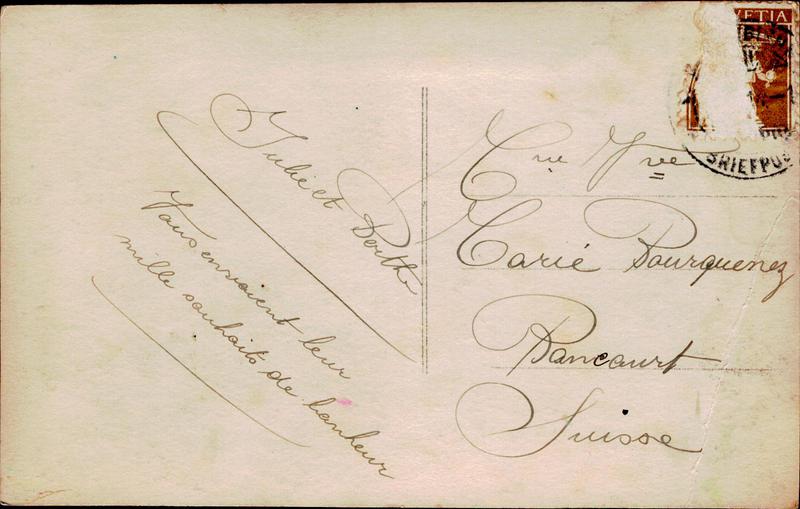 Julie et Berthe
Vous envoient leur
mille souhaits de bonheur
Mme Vve
Marie Bourquenez
Boncourt
Suisse
VETIA
BRIEFPOS